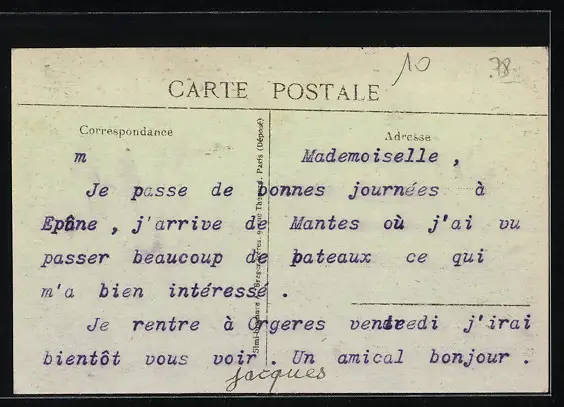 10 78
CARTE POSTALE
Correspondance Adresse
m Mademoiselle ,
Je passe de bonnes journées à
Epône , j'arrive de Mantes où j'ai vu
passer beaucoup de bateaux ce qui
m'a bien intéressé .
Je rentre à Orgeres vendredi j'irai
bientôt vous voir . Un amical bonjour .
jacques
Paris (Déposé)